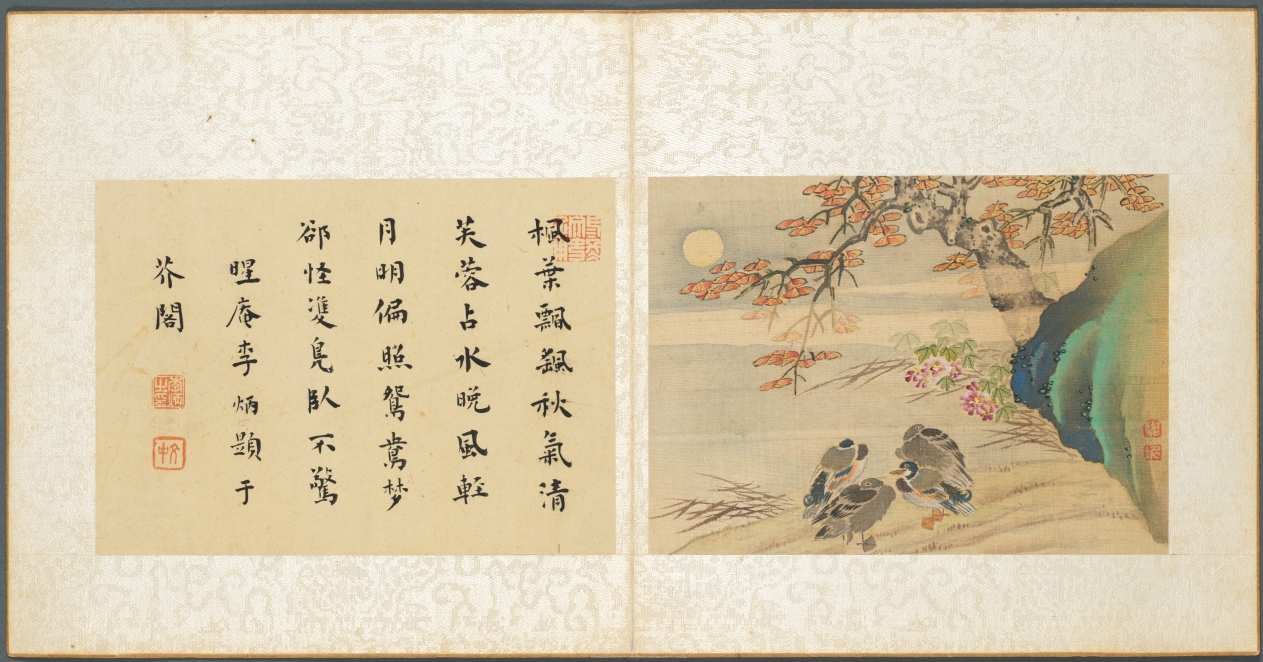 楓葉飄颻秋氣清
芙蓉占水晚風輕
月明偏照鴛鴦梦
郤怪雙鳬臥不驚
暒庵李炳題于
芥閣